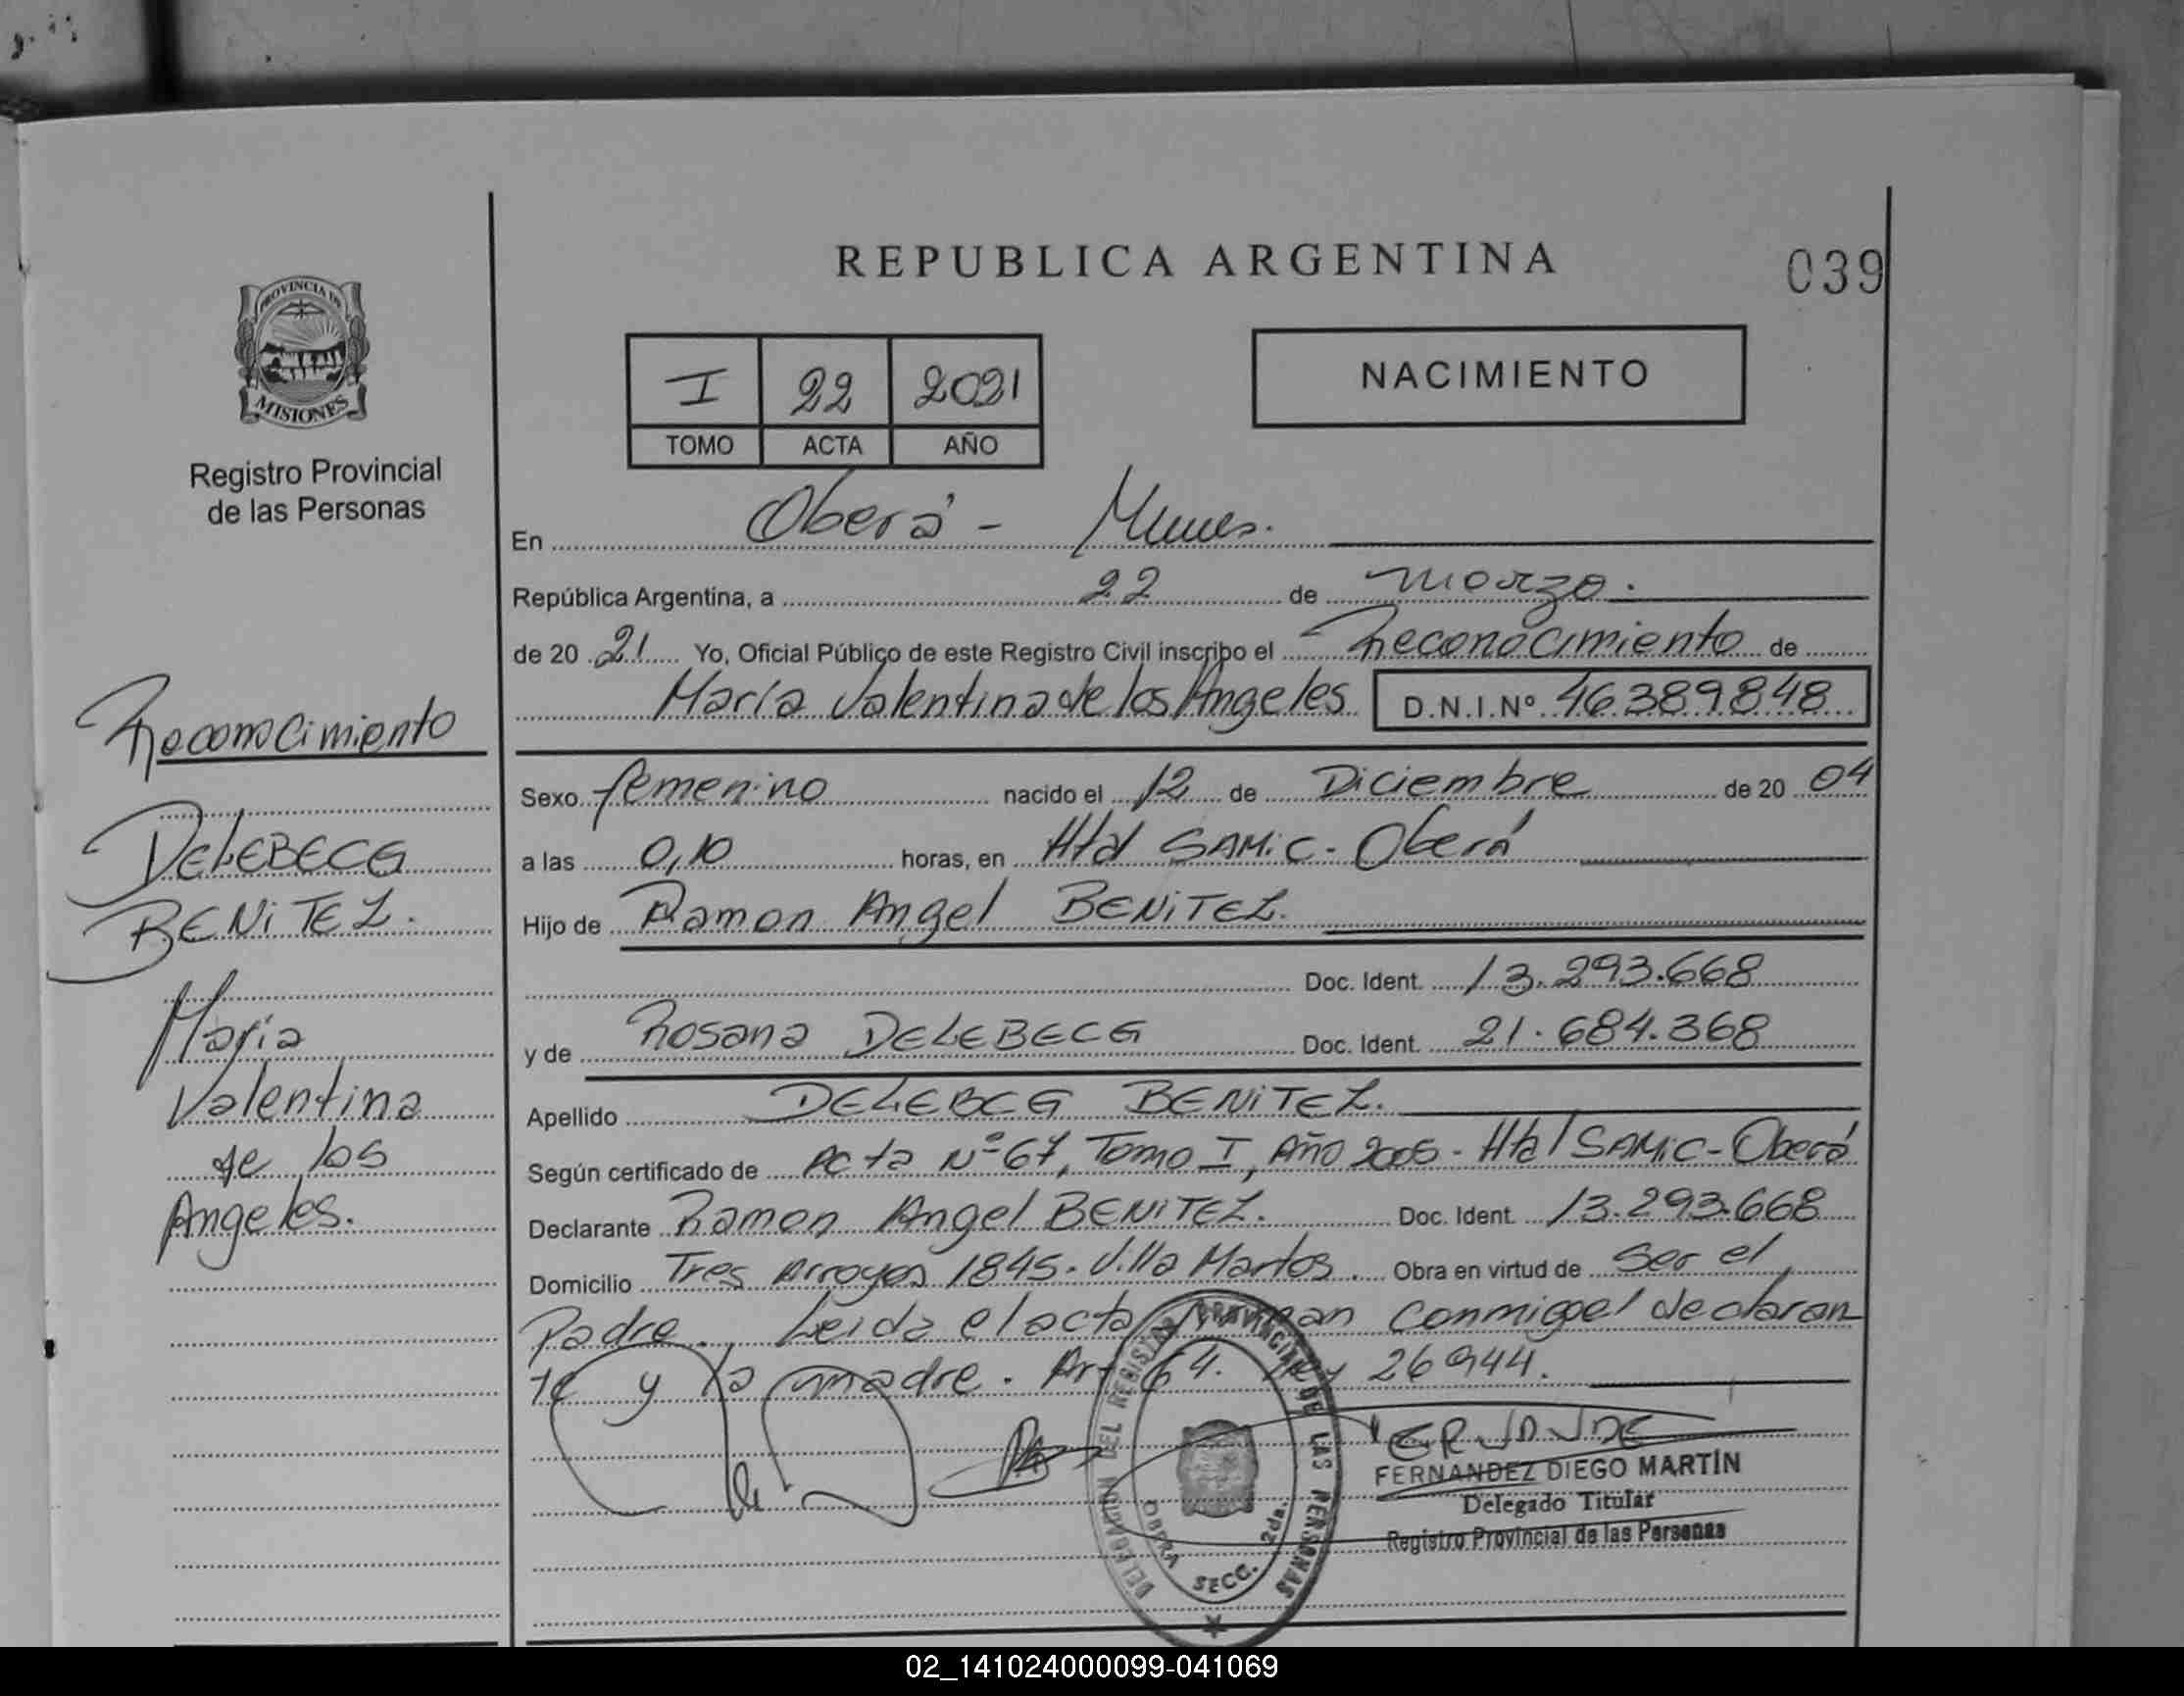 REPUBLICA ARGENTINA
039
PROVINCIA DE
MISIONES
Registro Provincial
de las Personas
I 22 2021
TOMO ACTA AÑO
NACIMIENTO
En Oberá - Mnes.
República Argentina, a 22 de marzo.
de 20 21 Yo, Oficial Público de este Registro Civil inscribo el Reconocimiento de
María Valentina de los Angeles D.N.I.Nº 46389848
Reconocimiento
DELEBECG
BENITEZ.
María
Valentina
de los
Angeles.
Sexo femenino nacido el 12 de Diciembre de 20 04
a las 0,10 horas, en Htal SAMIC - Oberá
Hijo de Ramon Angel BENITEZ.
Doc. Ident. 13.293.668
y de Rosana DELEBECG Doc. Ident. 21.684.368
Apellido DELEBCG BENITEZ.
Según certificado de Acta Nº 67, Tomo I, Año 2005 - Htal SAMIC - Oberá
Declarante Ramon Angel BENITEZ. Doc. Ident. 13.293.668
Domicilio Tres Arroyos 1845. Villa Martos. Obra en virtud de Ser el
Padre. Leida el acta firman conmigo el declaran
te y la madre. Art 64. Ley 26944.
FERNANDEZ DIEGO MARTÍN
Delegado Titular
Registro Provincial de las Personas
DELEGACION DEL REGISTRO PROVINCIAL DE LAS PERSONAS
OBERA SECC. 2da.
02_141024000099-041069